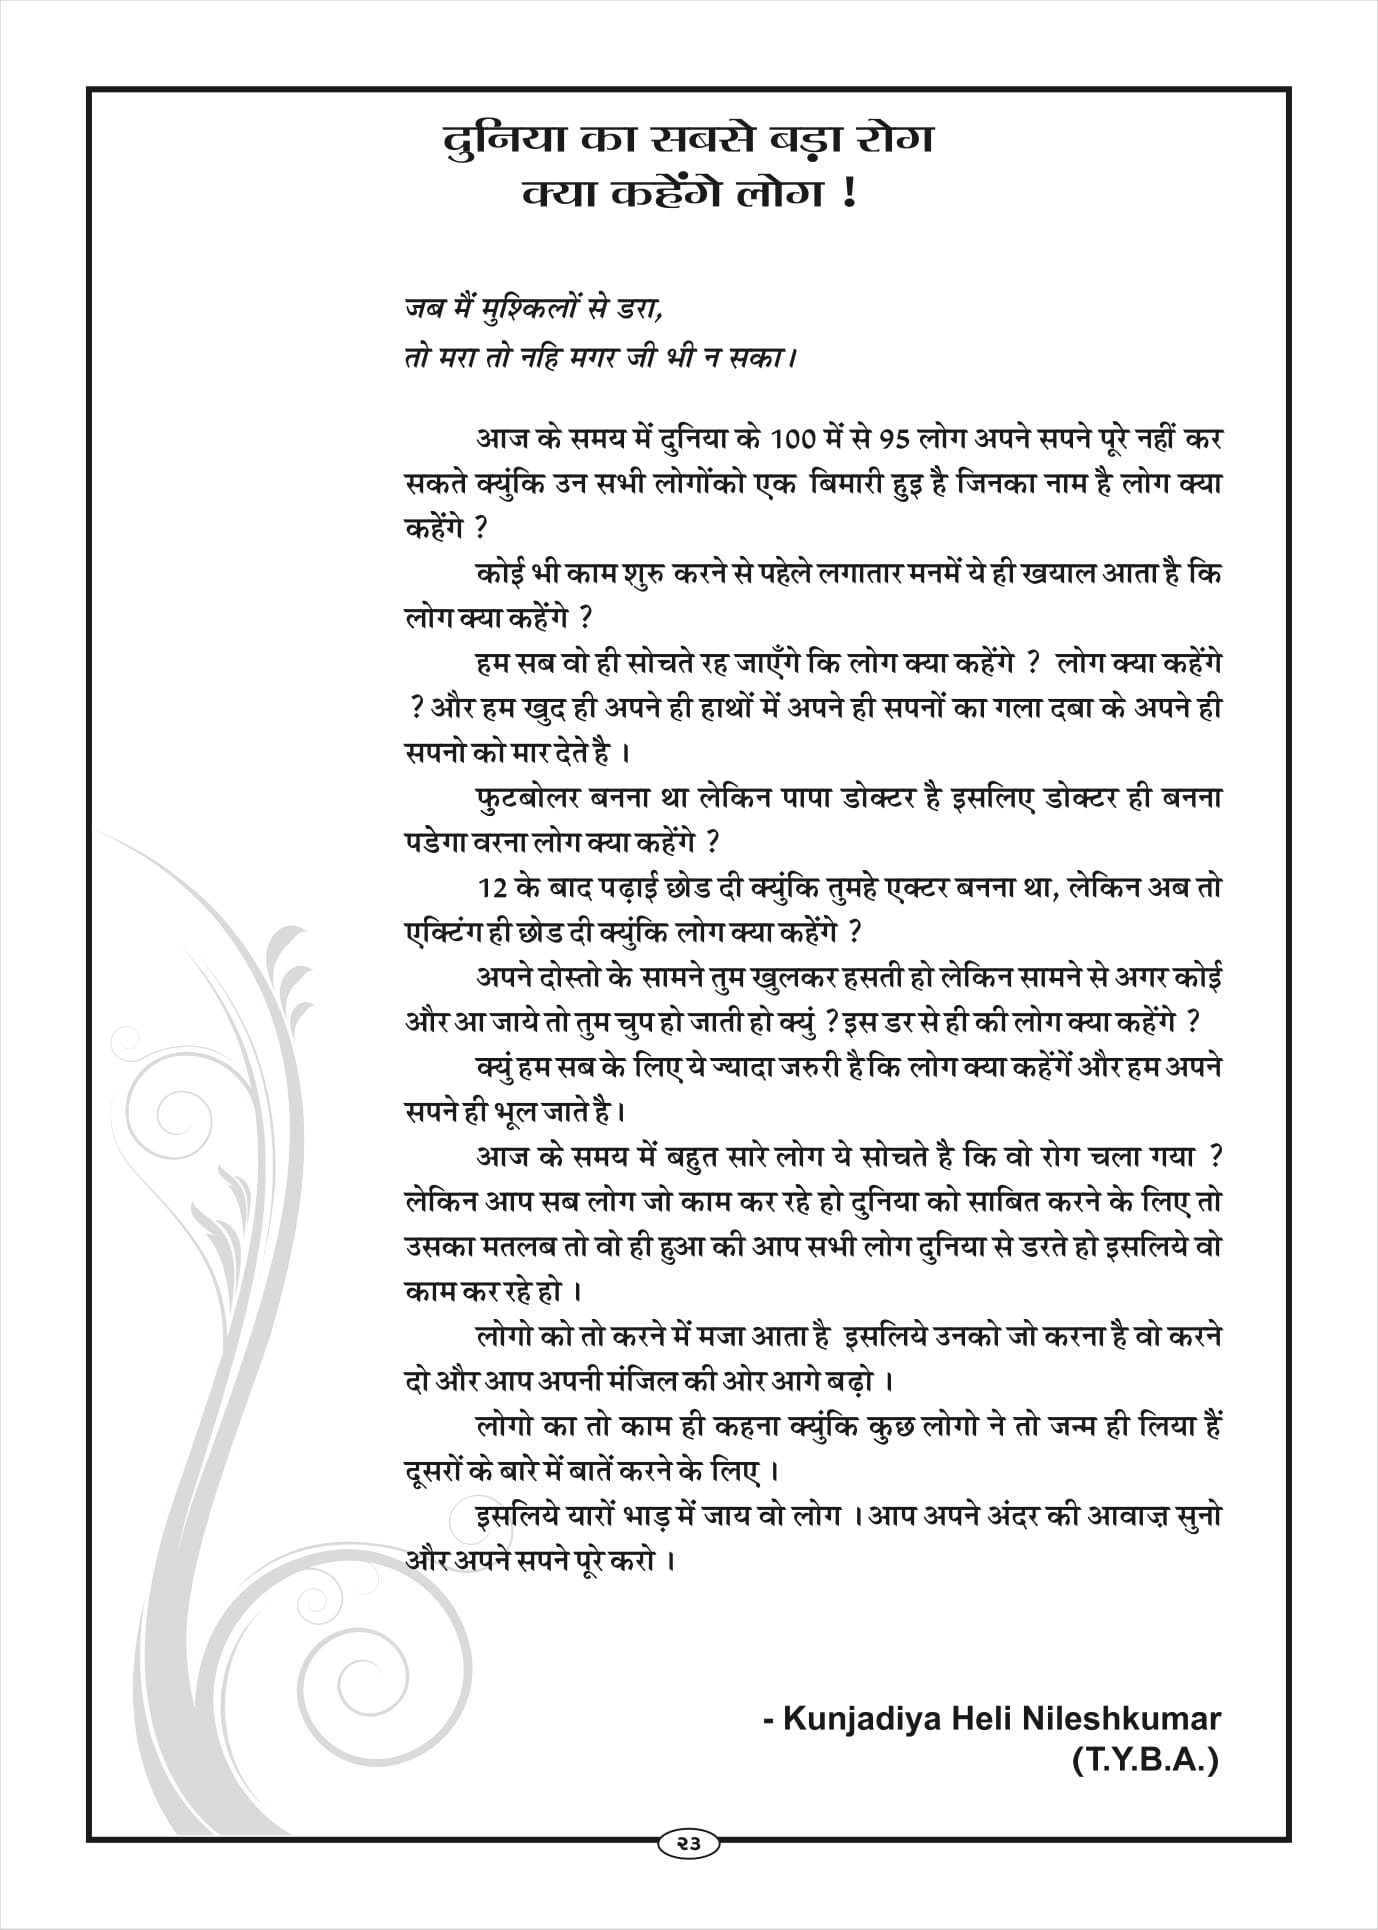 दुनिया का सबसे बड़ा रोग
क्या कहेंगे लोग !
जब मैं मुश्किलों से डरा,
तो मरा तो नहि मगर जी भी न सका।
आज के समय में दुनिया के 100 में से 95 लोग अपने सपने पूरे नहीं कर
सकते क्युंकि उन सभी लोगोंको एक बिमारी हुइ है जिनका नाम है लोग क्या
कहेंगे ?
कोई भी काम शुरु करने से पहेले लगातार मनमें ये ही खयाल आता है कि
लोग क्या कहेंगे ?
हम सब वो ही सोचते रह जाएँगे कि लोग क्या कहेंगे ? लोग क्या कहेंगे
? और हम खुद ही अपने ही हाथों में अपने ही सपनों का गला दबा के अपने ही
सपनो को मार देते है ।
फुटबोलर बनना था लेकिन पापा डोक्टर है इसलिए डोक्टर ही बनना
पडेगा वरना लोग क्या कहेंगे ?
12 के बाद पढ़ाई छोड दी क्युंकि तुमहे एक्टर बनना था, लेकिन अब तो
एक्टिंग ही छोड दी क्युंकि लोग क्या कहेंगे ?
अपने दोस्तो के सामने तुम खुलकर हसती हो लेकिन सामने से अगर कोई
और आ जाये तो तुम चुप हो जाती हो क्युं ? इस डर से ही की लोग क्या कहेंगे ?
क्युं हम सब के लिए ये ज्यादा जरुरी है कि लोग क्या कहेंगें और हम अपने
सपने ही भूल जाते है।
आज के समय में बहुत सारे लोग ये सोचते है कि वो रोग चला गया ?
लेकिन आप सब लोग जो काम कर रहे हो दुनिया को साबित करने के लिए तो
उसका मतलब तो वो ही हुआ की आप सभी लोग दुनिया से डरते हो इसलिये वो
काम कर रहे हो ।
लोगो को तो करने में मजा आता है इसलिये उनको जो करना है वो करने
दो और आप अपनी मंजिल की ओर आगे बढ़ो ।
लोगो का तो काम ही कहना क्युंकि कुछ लोगो ने तो जन्म ही लिया हैं
दूसरों के बारे में बातें करने के लिए ।
इसलिये यारों भाड़ में जाय वो लोग । आप अपने अंदर की आवाज़ सुनो
और अपने सपने पूरे करो ।
- Kunjadiya Heli Nileshkumar
(T.Y.B.A.)
२३